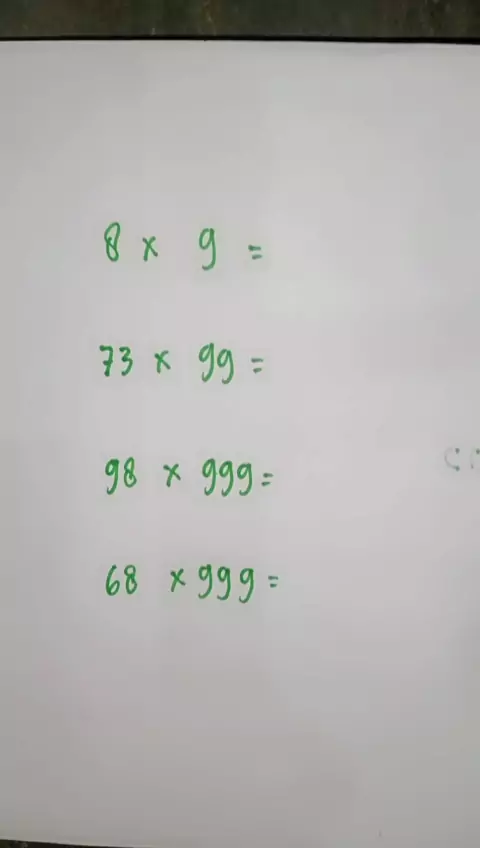 8 x 9 =
73 x 99 =
98 x 999 =
68 x 999 =